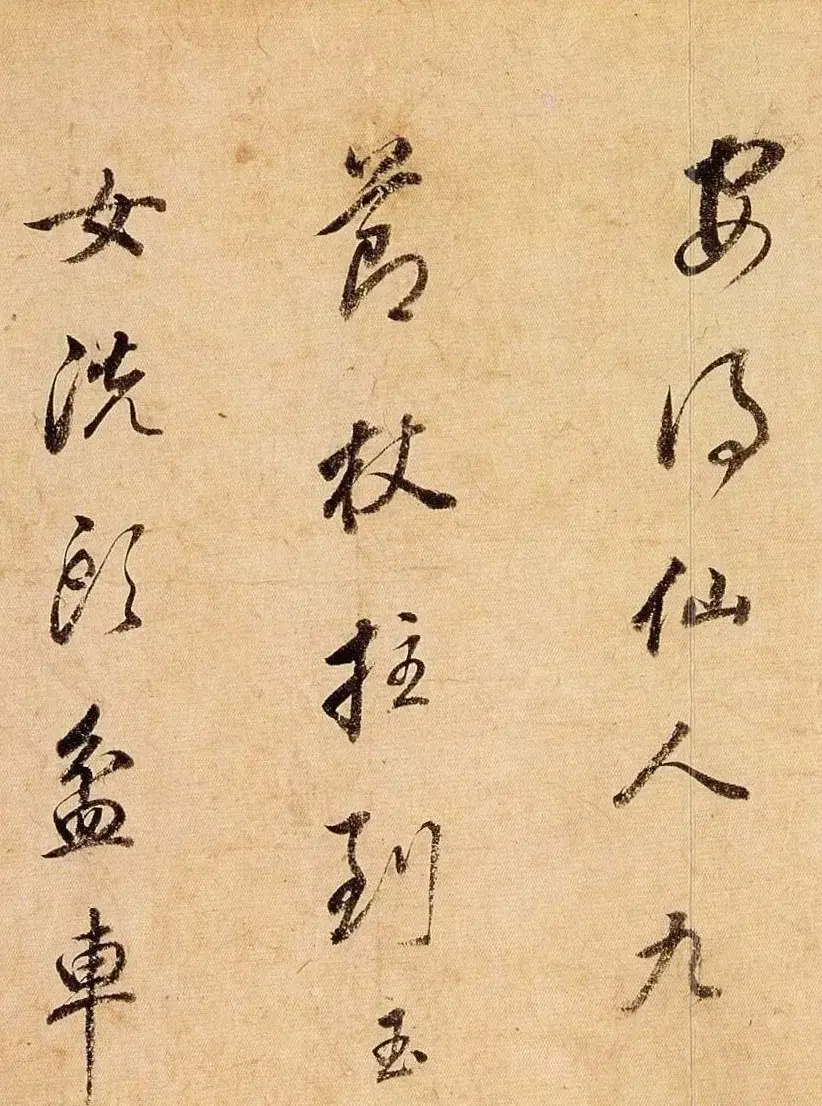 安得仙人九
節杖拄到玉
女洗頭盆車